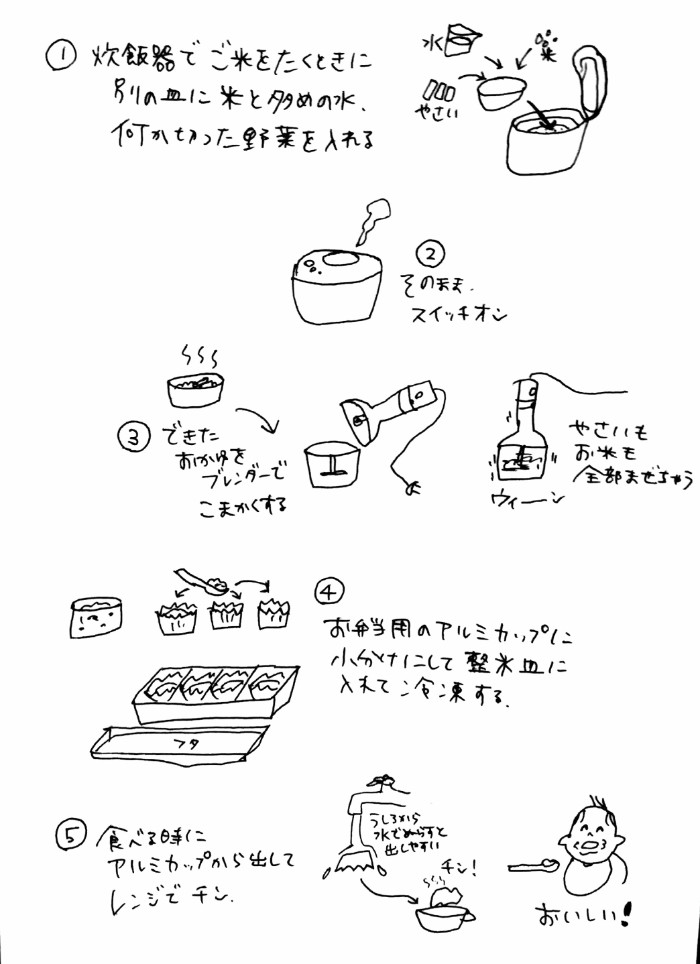 ① 炊飯器でご米をたくときに
別の皿に米と多めの水、
何か切った野菜を入れる
水
米
やさい
②
そのまま、
スイッチオン
③ できた
おかゆを
ブレンダーで
こまかくする
ウィーン
やさいも
お米も
全部まぜちゃう
④
お弁当用のアルミカップに
小分けにして整氷皿に
入れて冷凍する。
フタ
⑤ 食べる時に
アルミカップから出して
レンジでチン。
うしろから
水でぬらすと
出しやすい
チン!
おいしい!